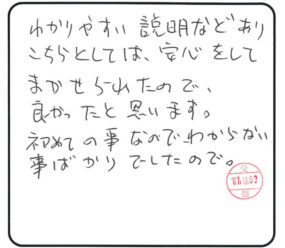 わかりやすい説明などあり
こちらとしては、安心をして
まかせられたので、
良かったと思います。
初めての事なのでわからない
事ばかりでしたので。